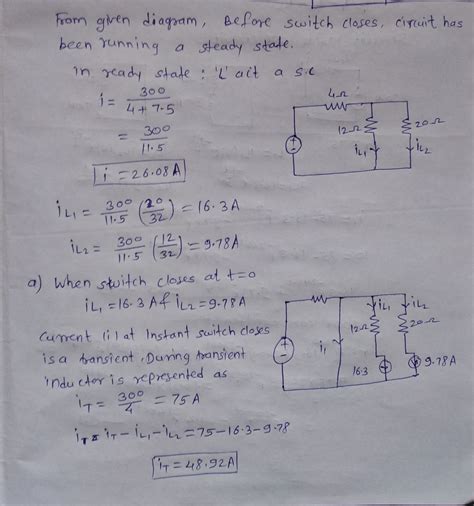 From given diagram, Before switch closes, circuit has
been running a steady state.
in ready state : 'L' act a s.c
i = 300 / 4 + 7.5
= 300 / 11.5
i = 26.08 A
4Ω
12Ω
20Ω
iL1
iL2
iL1 = 300/11.5 (20/32) = 16.3 A
iL2 = 300/11.5 (12/32) = 9.78 A
a) When switch closes at t=0
iL1 = 16.3 A & iL2 = 9.78 A
Current (i) at instant switch closes
is a transient. During transient
inductor is represented as
iT = 300/4 = 75 A
iT = iT - iL1 - iL2 = 75 - 16.3 - 9.78
iT = 48.92 A
i1
12Ω
iL1
iL2
20Ω
16.3
9.78 A